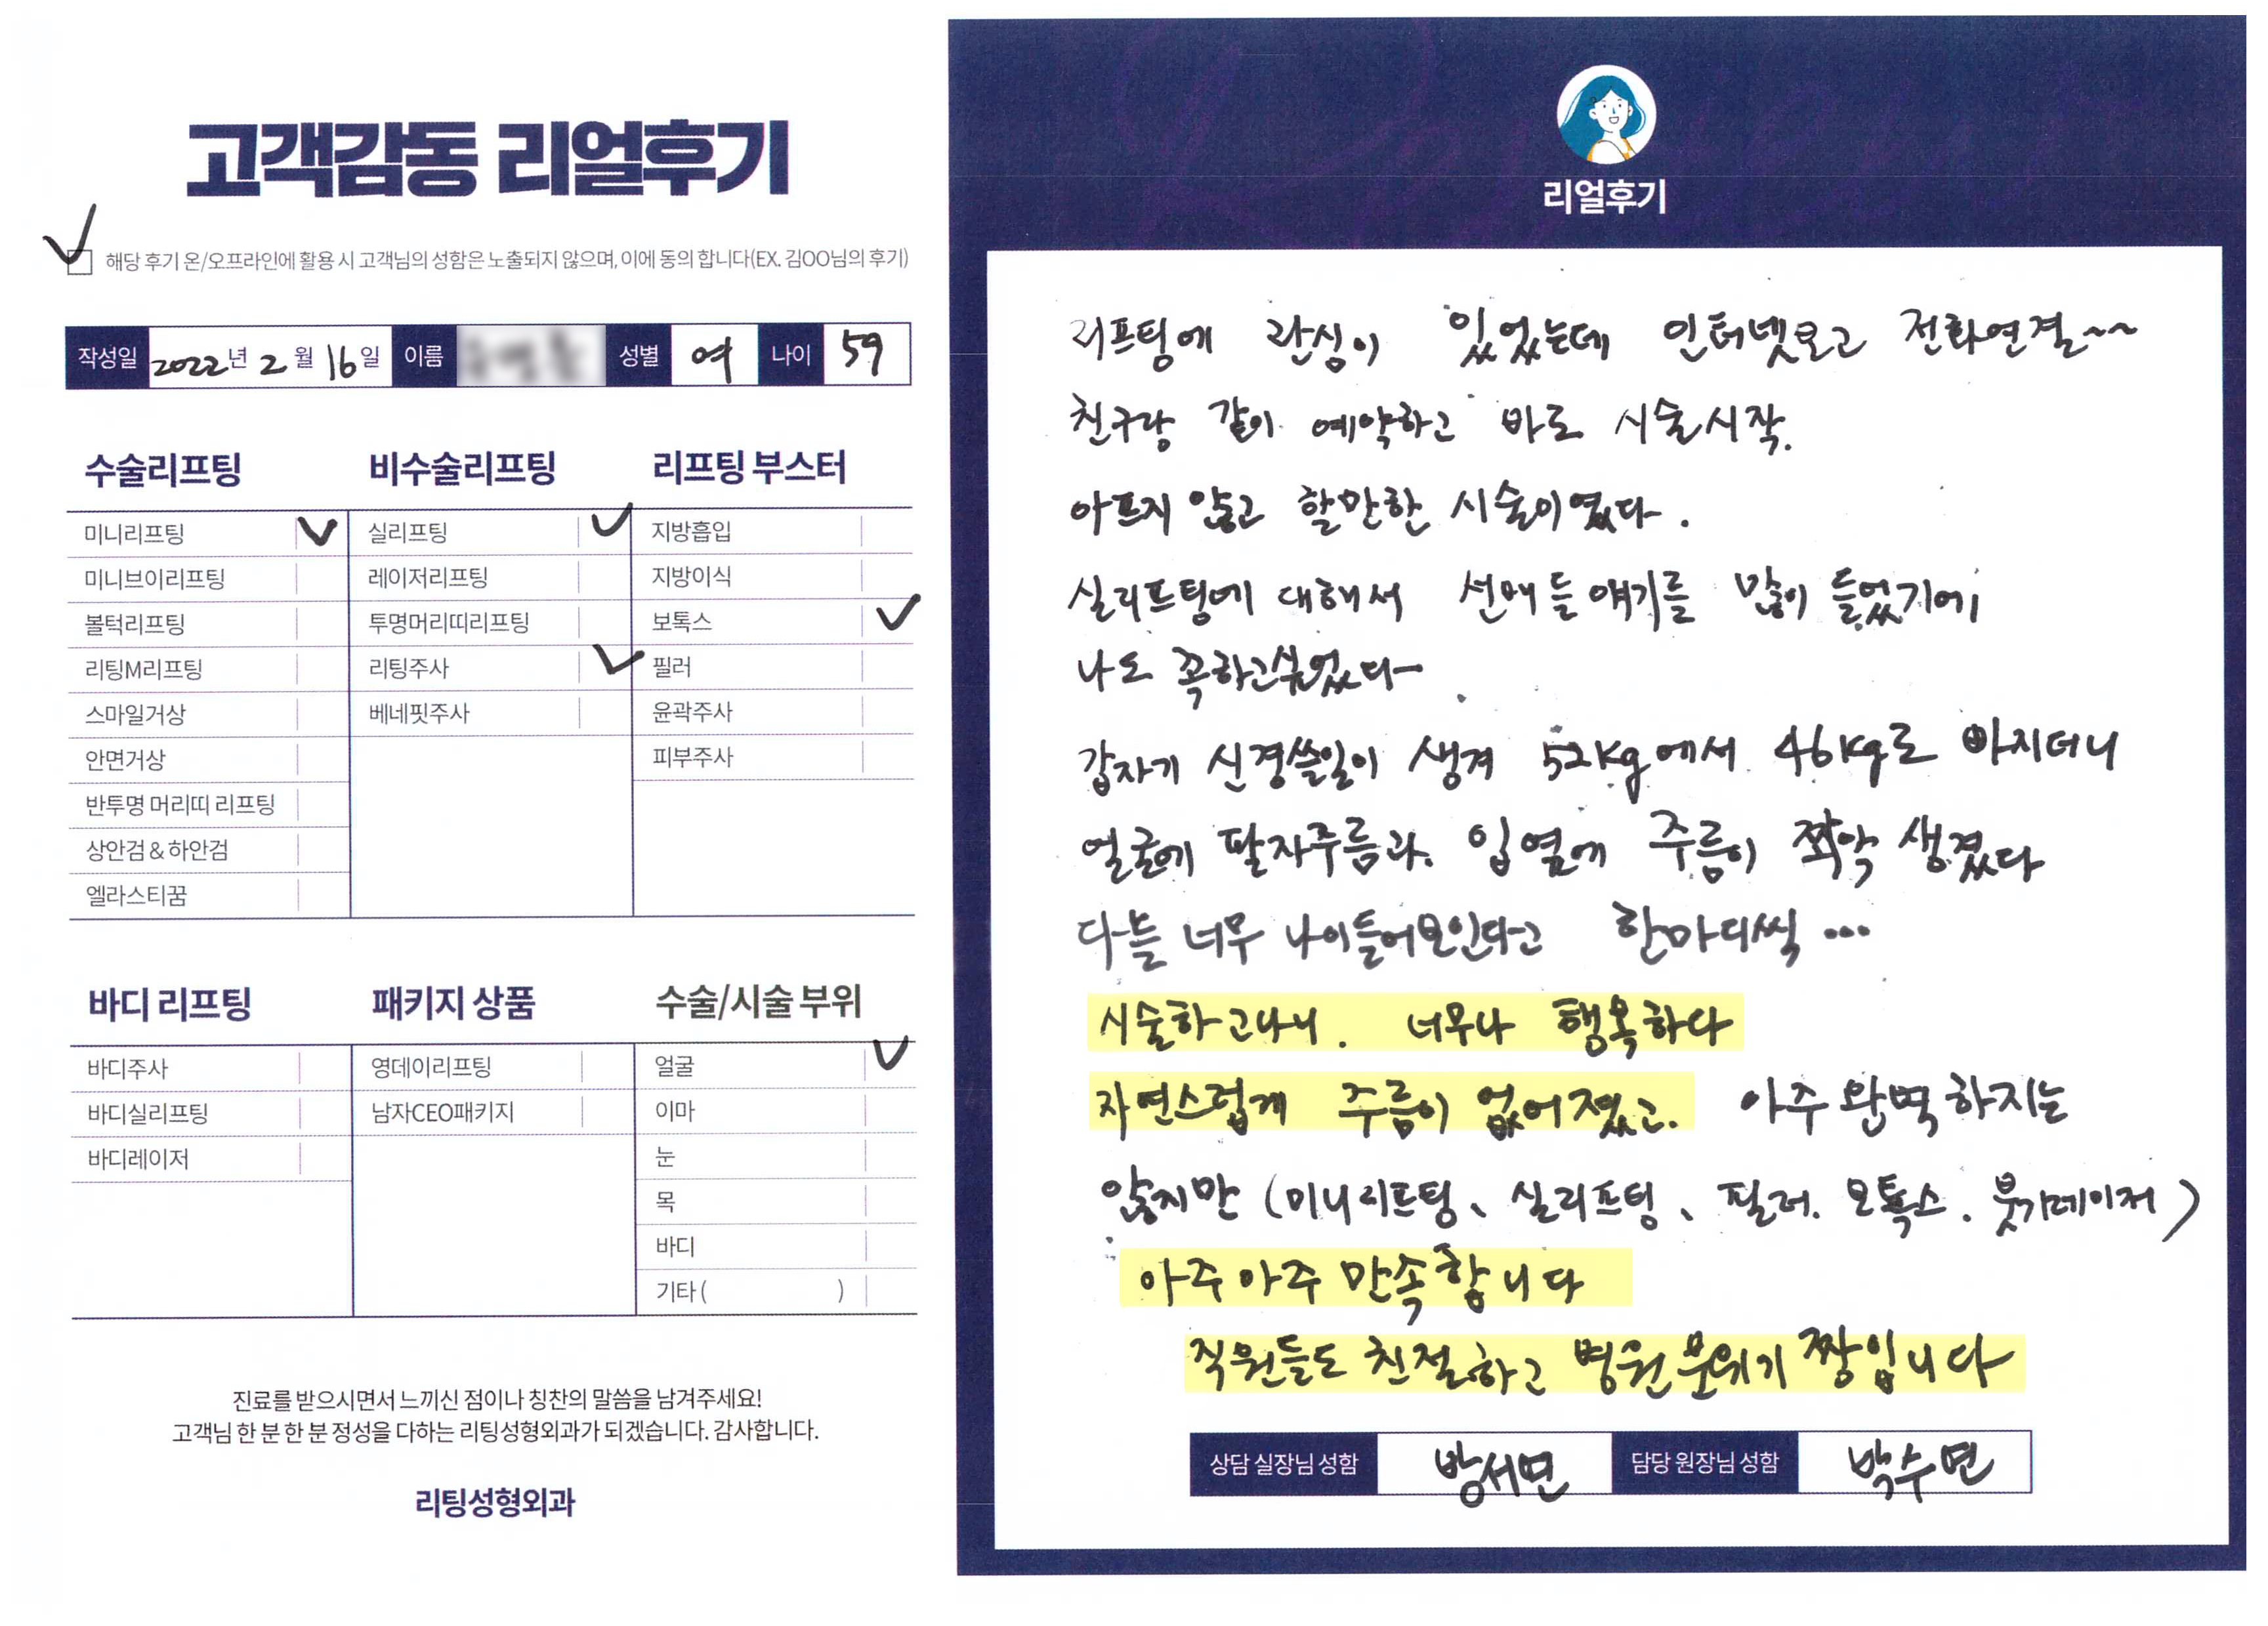 고객감동 리얼후기
해당 후기 온/오프라인에 활용 시 고객님의 성함은 노출되지 않으며, 이에 동의 합니다(EX. 김OO님의 후기)
작성일 2022년 2월 16일 이름 성별 여 나이 59
수술리프팅 비수술리프팅 리프팅 부스터
미니리프팅 실리프팅 지방흡입
미니브이리프팅 레이저리프팅 지방이식
볼턱리프팅 투명머리띠리프팅 보톡스
리팅M리프팅 리팅주사 필러
스마일거상 베네핏주사 윤곽주사
안면거상 피부주사
반투명 머리띠 리프팅
상안검 & 하안검
엘라스티꿈
바디 리프팅 패키지 상품 수술/시술 부위
바디주사 영데이리프팅 얼굴
바디실리프팅 남자CEO패키지 이마
바디레이저 눈
목
바디
기타 ( )
진료를 받으시면서 느끼신 점이나 칭찬의 말씀을 남겨주세요!
고객님 한 분 한 분 정성을 다하는 리팅성형외과가 되겠습니다. 감사합니다.
리팅성형외과
리얼후기
리프팅에 관심이 있었는데 인터넷보고 전화연결~~
친구랑 같이 예약하고 바로 시술시작.
아프지 않고 할만한 시술이였다.
실리프팅에 대해서 선배들 얘기를 많이 들었기에
나도 꼭하고싶었다
갑자기 신경쓸일이 생겨 52kg에서 46kg로 빠지더니
얼굴에 팔자주름과 입옆에 주름이 쫘악 생겼다
다들 너무 나이들어보인다고 한마디씩 ...
시술하고나니. 너무나 행복하다
자연스럽게 주름이 없어졌고. 아주 완벽하지는
않지만 (미니리프팅、실리프팅、필러. 보톡스. 붓기레이저)
아주아주 만족합니다
직원들도 친절하고 병원분위기 짱입니다
상담 실장님 성함 방서연 담당 원장님 성함 박수연